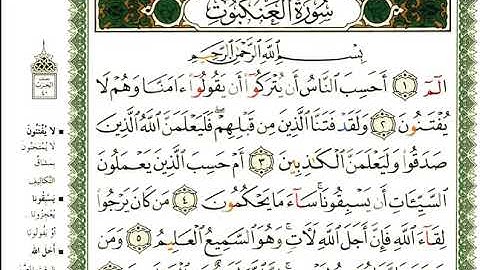 سُورَةُ العَنكبُوتِ
بِسْمِ ٱللَّهِ ٱلرَّحْمَٰنِ ٱلرَّحِيمِ
الٓمٓ ١ أَحَسِبَ ٱلنَّاسُ أَن يُتْرَكُوٓا۟ أَن يَقُولُوٓا۟ ءَامَنَّا وَهُمْ لَا
يُفْتَنُونَ ٢ وَلَقَدْ فَتَنَّا ٱلَّذِينَ مِن قَبْلِهِمْ ۖ فَلَيَعْلَمَنَّ ٱللَّهُ ٱلَّذِينَ
صَدَقُوا۟ وَلَيَعْلَمَنَّ ٱلْكَٰذِبِينَ ٣ أَمْ حَسِبَ ٱلَّذِينَ يَعْمَلُونَ
ٱلسَّيِّـَٔاتِ أَن يَسْبِقُونَا ۚ سَآءَ مَا يَحْكُمُونَ ٤ مَن كَانَ يَرْجُوا۟
لِقَآءَ ٱللَّهِ فَإِنَّ أَجَلَ ٱللَّهِ لَءَاتٍ ۚ وَهُوَ ٱلسَّمِيعُ ٱلْعَلِيمُ ٥ وَمَن
الحزب
٤٠
لا يُفْتَنُونَ
لا يُمْتَحَنُونَ
بمشاقِّ
التكاليف
يَسْبِقُونا
يُعْجِزُونا
أو يفُوتُونا
أجل الله